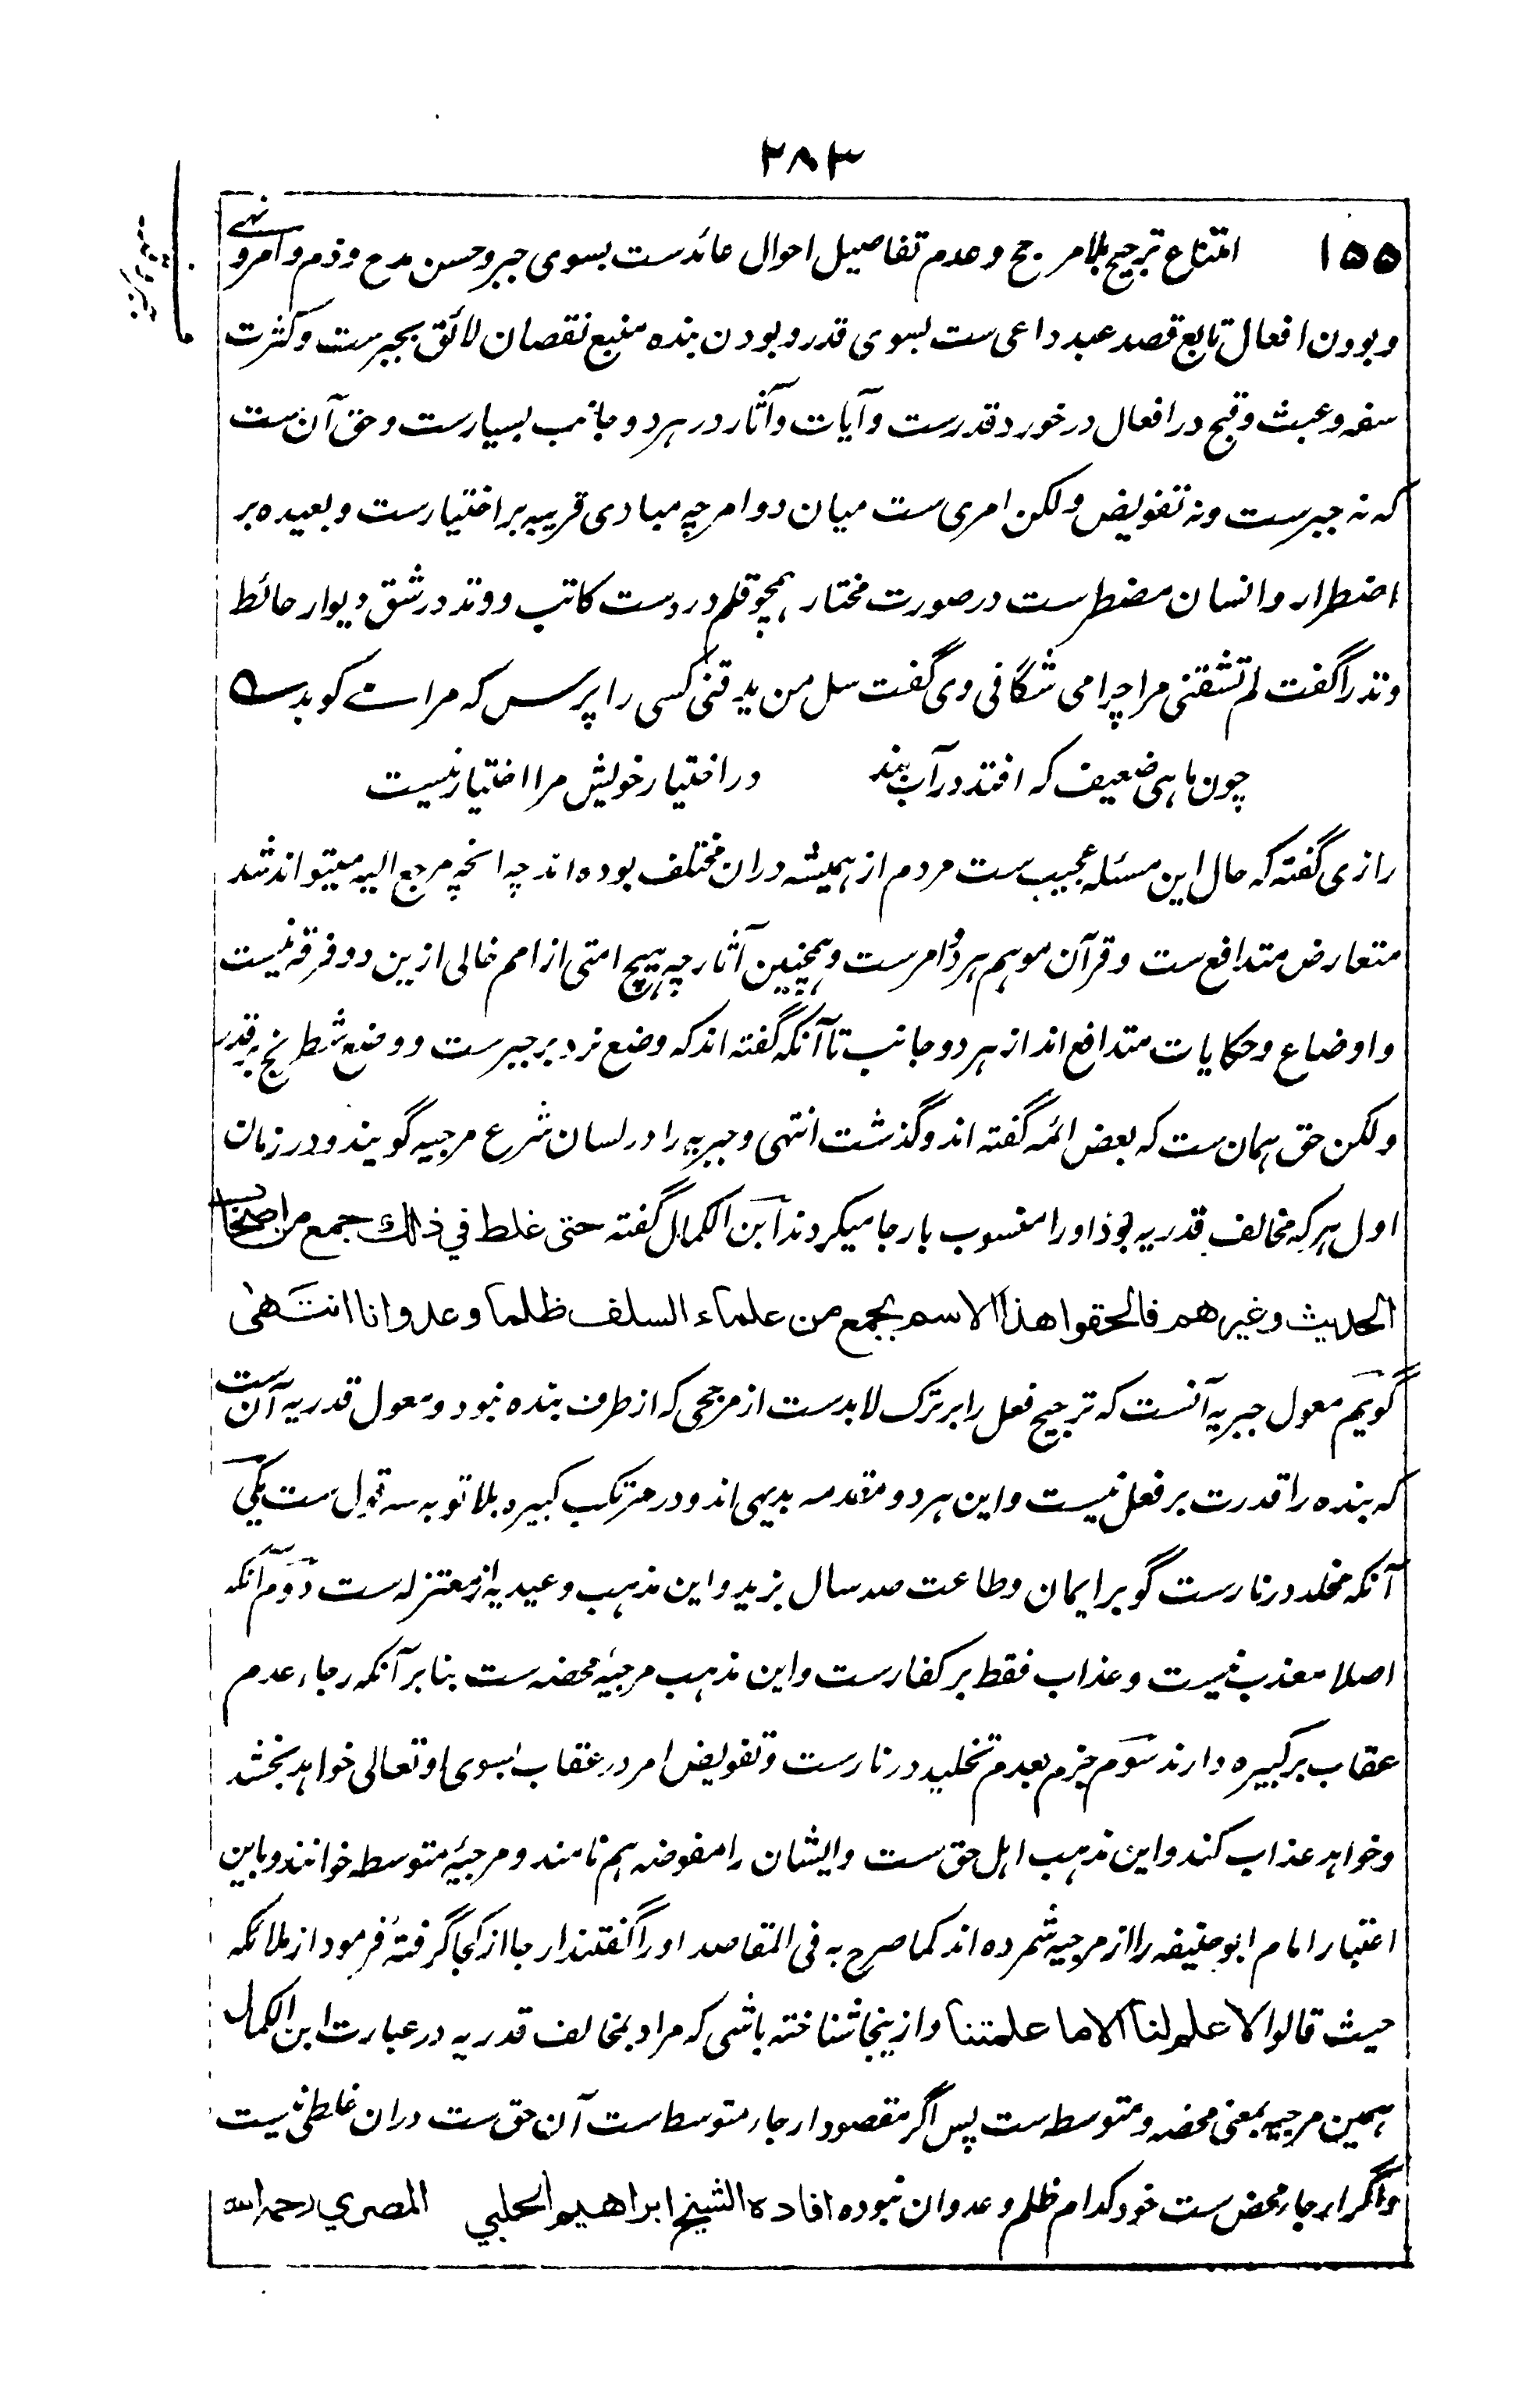 ۲۸۳
۱۵۵ امتناع ترجیح بلا مرجح و عدم تفاصیل احوال عائدست بسوی جبر و حسن مدح و ذم و امر و نہے
و بودن افعال تابع قصد عبد داعی ست بسوی قدر و بودن بنده منبع نقصان لائق بجبرست و کثرت
سفه و عبث و قبح در افعال درخورد قدرست و آیات و آثار در هر دو جانب بسیارست و حق آن ست
که نه جبرست و نه تفویض و لکن امری ست میان دو امر چه مبادی قریبه بر اختیارست و بعیده بر
اضطرار و انسان مضطرست در صورت مختار همچو قلم در دست کاتب و وتد در شق دیوار حائط
وتد را گفت لم تشقنی مرا چرا می شگافی وی گفت سل من یدقنی کسی را پرس که مرا سے کوبد
چون ماهی ضعیف که افتد در آب بند در اختیار خویش مرا اختیار نیست
رازی گفته که حال این مسئله عجیب ست مردم از همیشه دران مختلف بوده اند چه انچه مرجع الیه میتواند شد
متعارض متدافع ست و قرآن موهم هر دو امرست و همچنین آثار چه هیچ امتی از امم خالی ازین دو فرقه نیست
و اوضاع و حکایات متدافع اند از هر دو جانب تا آنکه گفته اند که وضع نرد بر جبرست و وضع شطرنج بر قدر
ولکن حق همان ست که بعض ائمه گفته اند و گذشت انتهی و جبریه را در لسان شرع مرجیه گویند و در زمان
اول هر که مخالف قدریه بود او را منسوب بارجا میکردند ابن الکمال گفته حتى غلط في ذلك جمع من اصحاب
الحديث وغيرهم فالحقوا هذا الاسم بجمع من علماء السلف ظلما وعدوانا انتهى
گویم معول جبریه آنست که ترجیح فعل را بر ترک لابدست از مرجحی که از طرف بنده نبود و معول قدریه آن ست
که بنده را قدرت بر فعل نیست و این هر دو مقدمه بدیهی اند و در مرتکب کبیره بلا توبه سه قول ست یکی
آنکه مخلد در نارست گو بر ایمان و طاعت صد سال بزید و این مذهب وعیدیه از معتزله ست دوم آنکه
اصلا معذب نیست و عذاب فقط بر کفارست و این مذهب مرجیۂ محضه ست بنا بر آنکه رجاء عدم
عقاب بر کبیره دارند سوم جزم بعدم تخلید در نارست و تفویض امر در عقاب بسوی او تعالی خواهد بخشد
و خواهد عذاب کند و این مذهب اهل حق ست و ایشان را مفوضه هم نامند و مرجیۂ متوسطه خوانند و باین
اعتبار امام ابوحنیفه را از مرجیه شمرده اند کما صرح به فی المقاصد او را گفتند ارجا از کجا گرفتۂ فرمود از ملائکه
حیث قالوا لا علم لنا الا ما علمتنا و ازینجا شناخته باشی که مراد بمخالف قدریه در عبارت ابن الکمال
همین مرجیه بمعنی محضه و متوسطه ست پس اگر مقصود ارجاء متوسط ست آن حق ست دران غلطی نیست
و اگر ارجاء محض ست خود کدام ظلم و عدوان نبوده افاده الشيخ ابراهيم الحلبي المصري رحمه الله